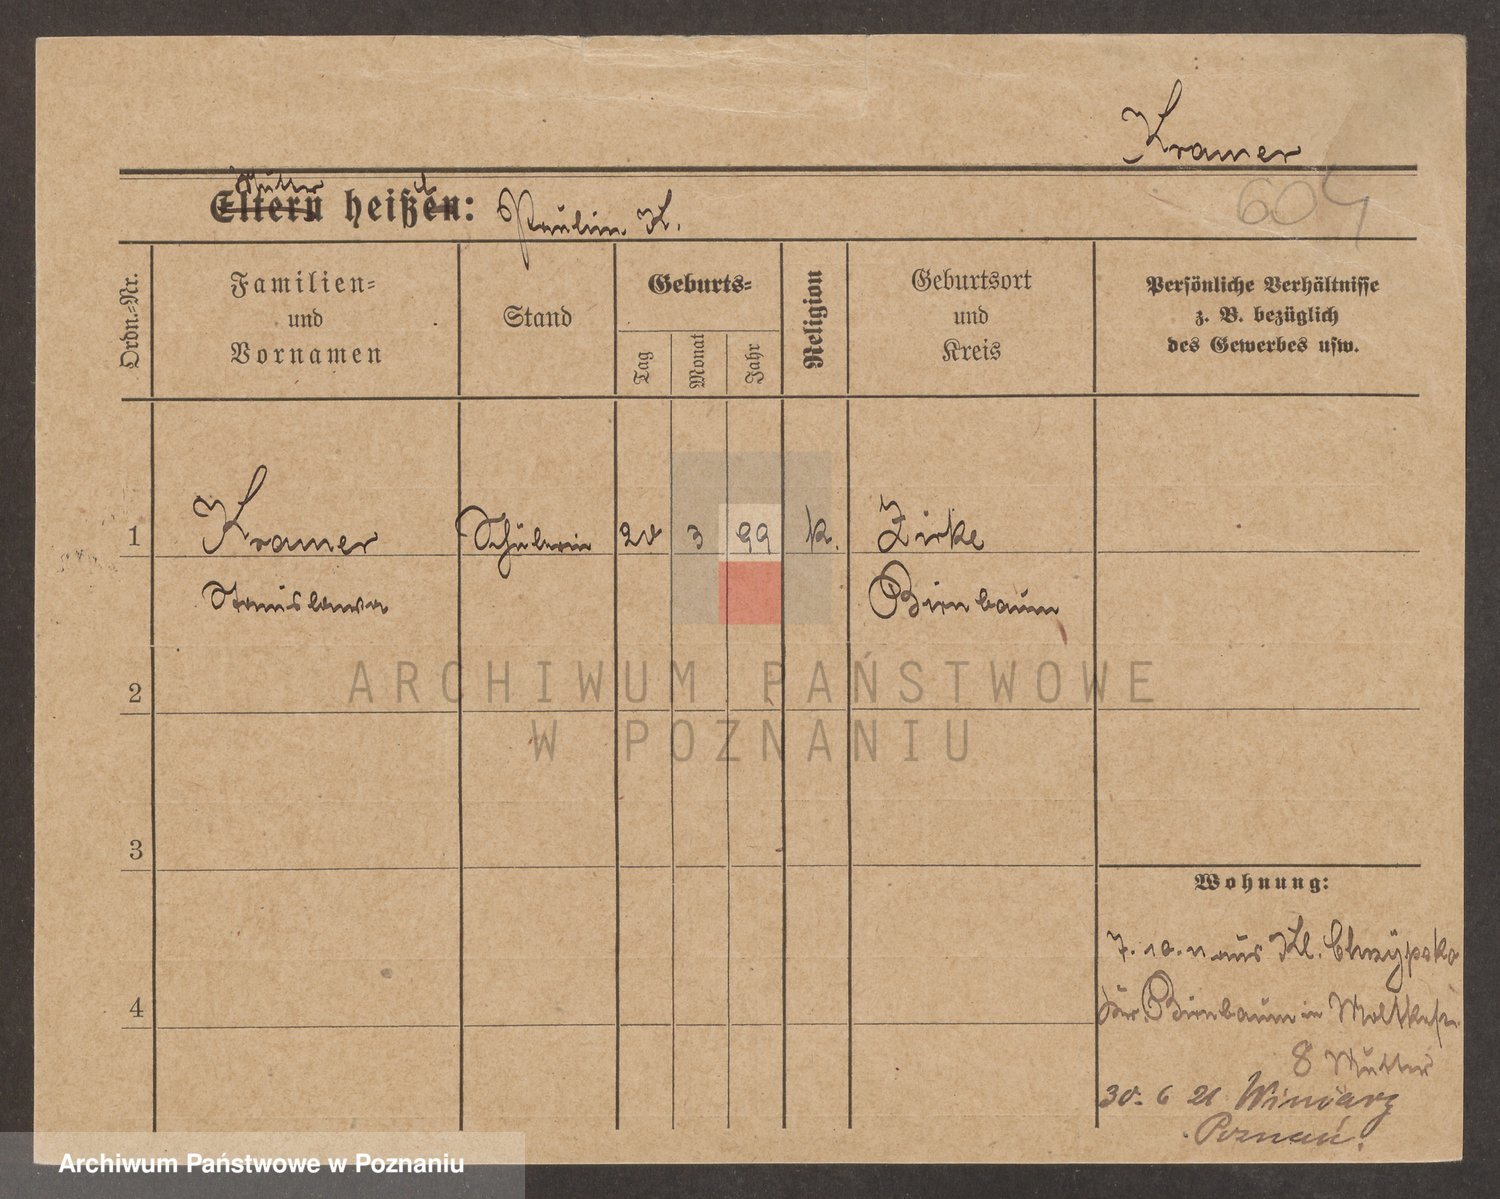 Kramer
604
Mutter
Eltern heißen: Paulin K.
t
Ordn.=Nr.
Familien=
und
Vornamen
Stand
Geburts=
Tag
Monat
Jahr
Religion
Geburtsort
und
Kreis
Persönliche Verhältnisse
z. B. bezüglich
des Gewerbes usw.
1 Kramer Schülerin 3 99 k. Zirke
Stanislawa Birnbaum
2
3
4
Wohnung:
7. 10. 11 aus Kl. Chrzypsko
Kr. Birnbaum in Moltkestr
8 Mutter
30. 6 21 Winiary
Poznań.
ARCHIWUM PAŃSTWOWE
W POZNANIU
Archiwum Państwowe w Poznaniu